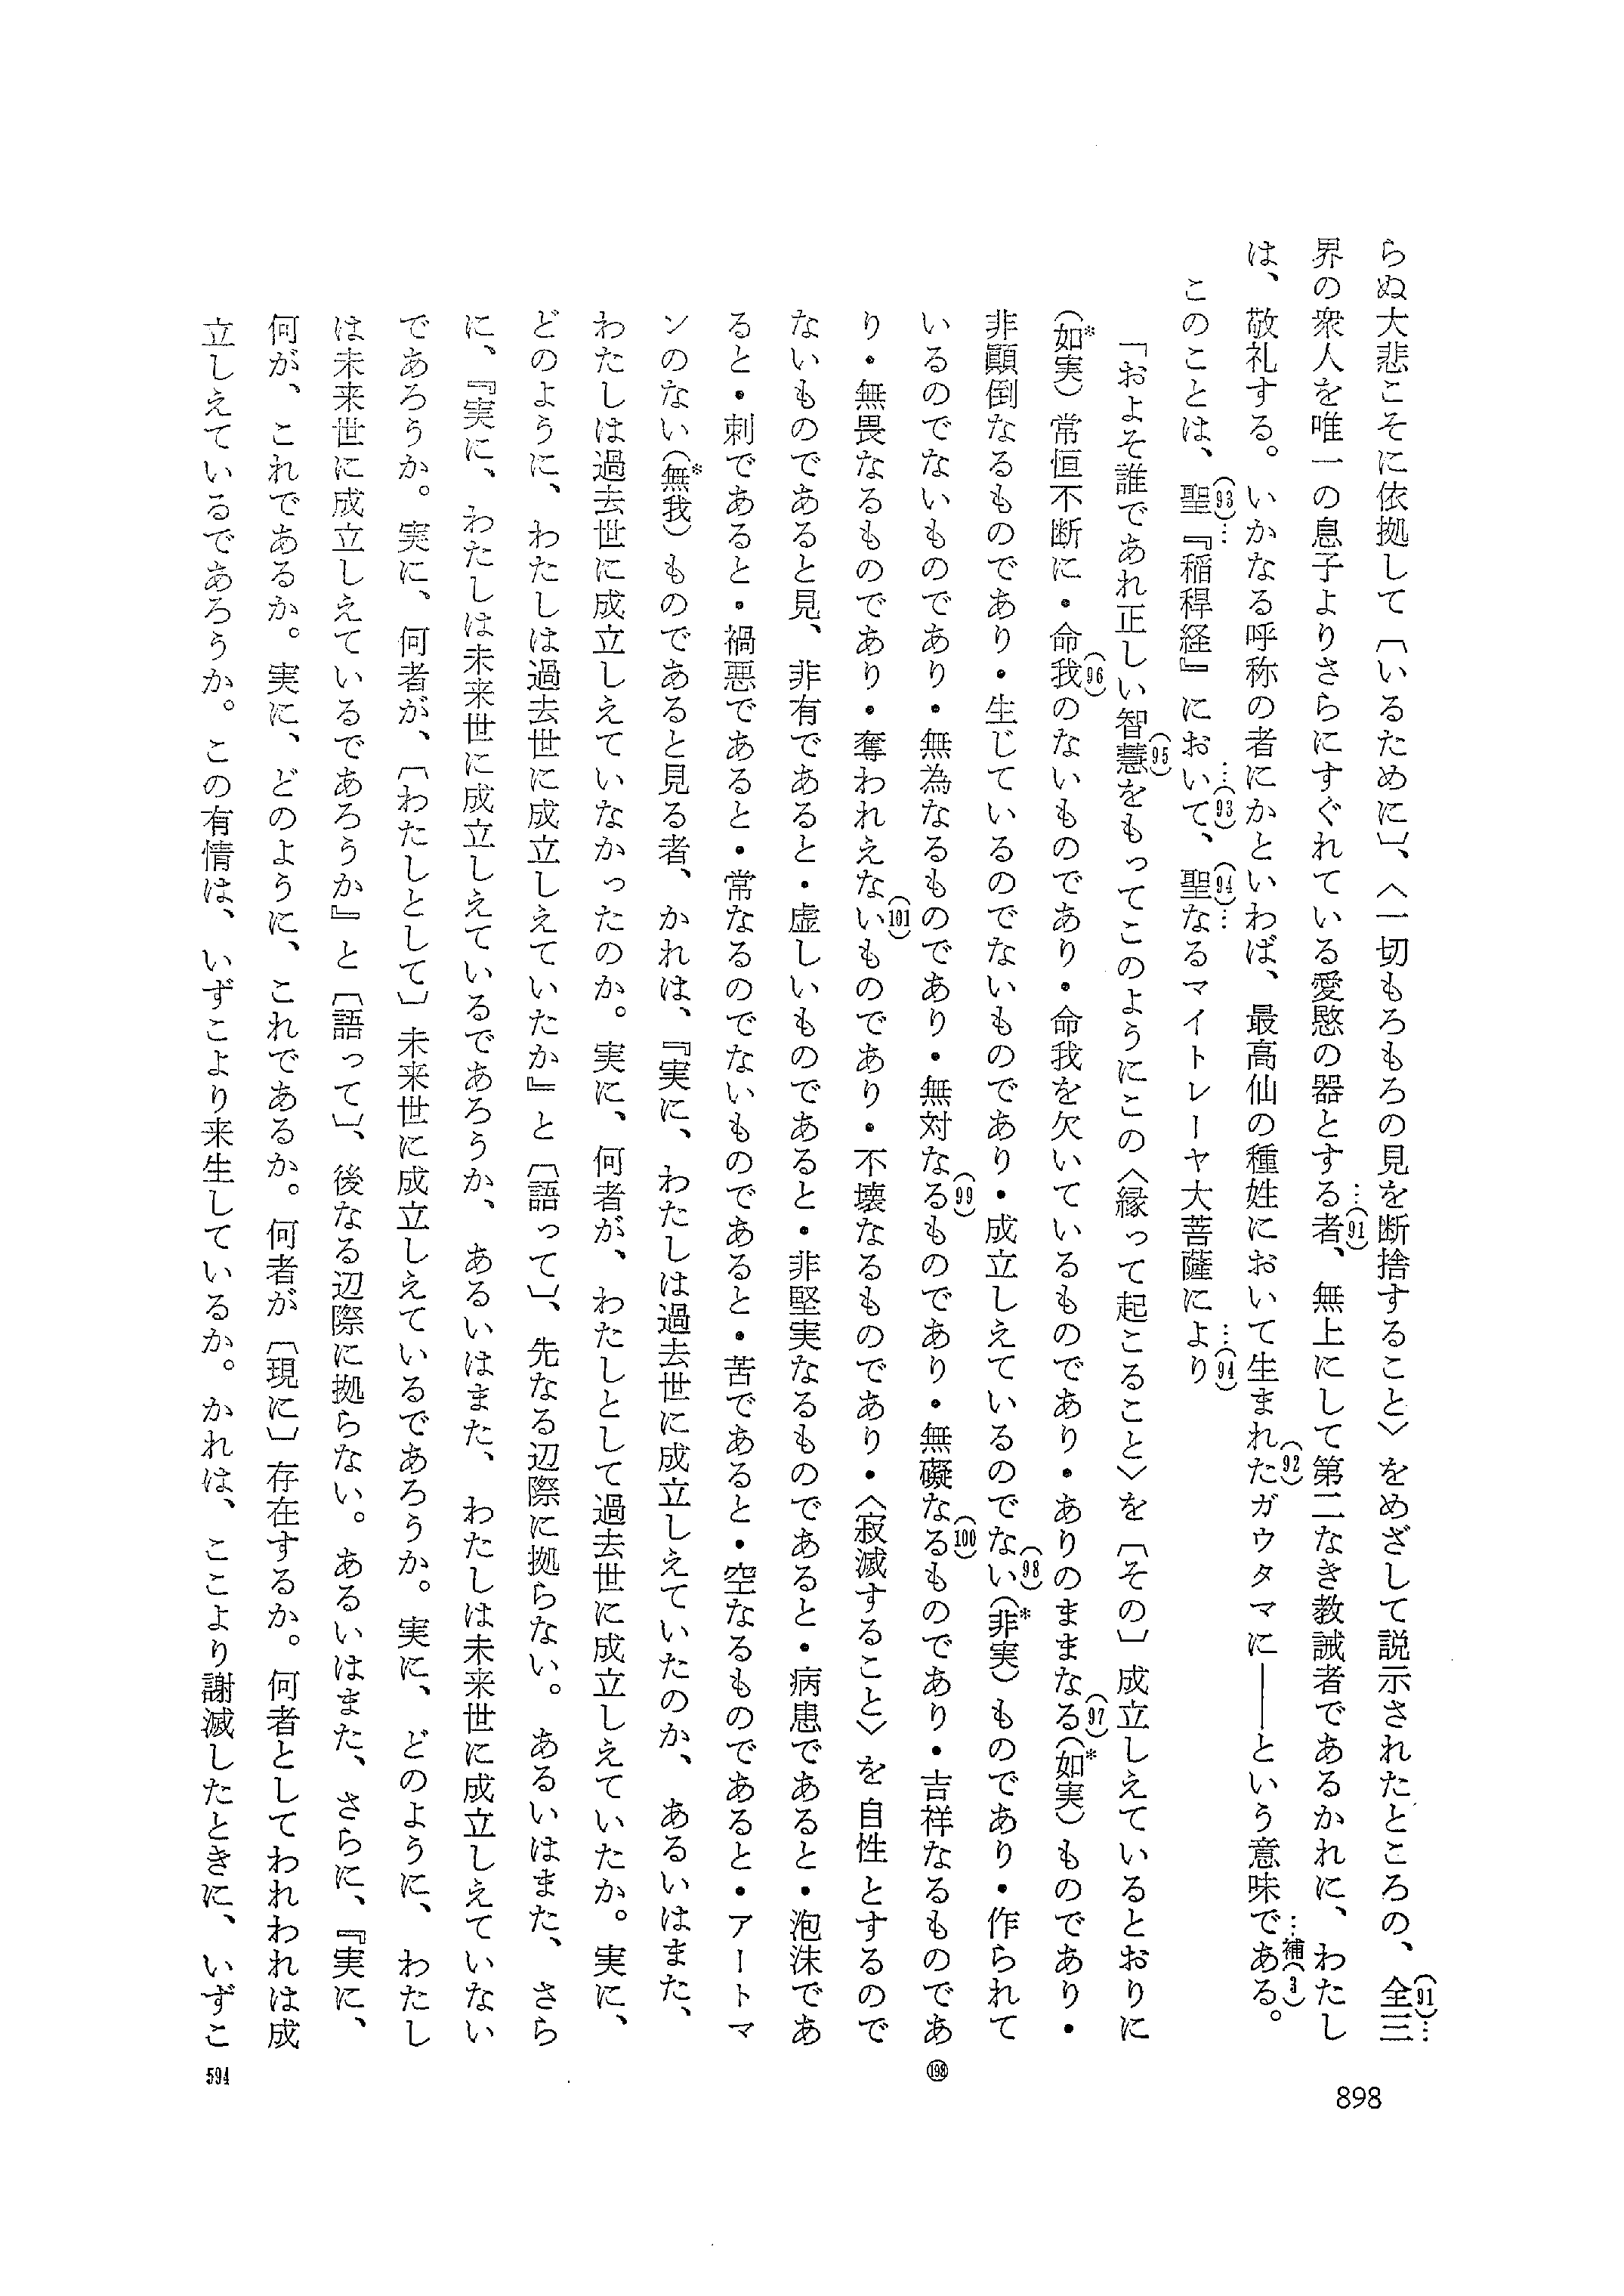 らぬ大悲こそに依拠して〔いるために〕、〈一切もろもろの見を断捨すること〉をめざして説示されたところの、全三(91)…
界の衆人を唯一の息子よりさらにすぐれている愛愍の器とする者…(91)、無上にして第二なき教誡者であるかれに、わたし
は、敬礼する。いかなる呼称の者にかといわば、最高仙の種姓において生まれた(92)ガウタマに——という意味である…補(3)。
このことは、聖(93)…『稲稈経』において…(93)、聖(94)…なるマイトレーヤ大菩薩により…(94)
「およそ誰であれ正しい智慧(95)をもってこのようにこの〈縁って起こること〉を〔その〕成立しえているとおりに
(如*実)常恒不断に・命我(96)のないものであり・命我を欠いているものであり・ありのままなる(97)(如*実)ものであり・
非顚倒なるものであり・生じているのでないものであり・成立しえているのでない(98)(非*実)ものであり・作られて
いるのでないものであり・無為なるものであり・無対なる(99)ものであり・無礙なる(100)ものであり・吉祥なるものであ
り・無畏なるものであり・奪われえない(101)ものであり・不壊なるものであり・〈寂滅すること〉を自性とするので
ないものであると見、非有であると・虚しいものであると・非堅実なるものであると・病患であると・泡沫であ
ると・刺であると・禍悪であると・常なるのでないものであると・苦であると・空なるものであると・アートマ
ンのない(無*我)ものであると見る者、かれは、『実に、わたしは過去世に成立しえていたのか、あるいはまた、
わたしは過去世に成立しえていなかったのか。実に、何者が、わたしとして過去世に成立しえていたか。実に、
どのように、わたしは過去世に成立しえていたか』と〔語って〕、先なる辺際に拠らない。あるいはまた、さら
に、『実に、わたしは未来世に成立しえているであろうか、あるいはまた、わたしは未来世に成立しえていない
であろうか。実に、何者が、〔わたしとして〕未来世に成立しえているであろうか。実に、どのように、わたし
は未来世に成立しえているであろうか』と〔語って〕、後なる辺際に拠らない。あるいはまた、さらに、『実に、
何が、これであるか。実に、どのように、これであるか。何者が〔現に〕存在するか。何者としてわれわれは成
立しえているであろうか。この有情は、いずこより来生しているか。かれは、ここより謝滅したときに、いずこ
198
594
898